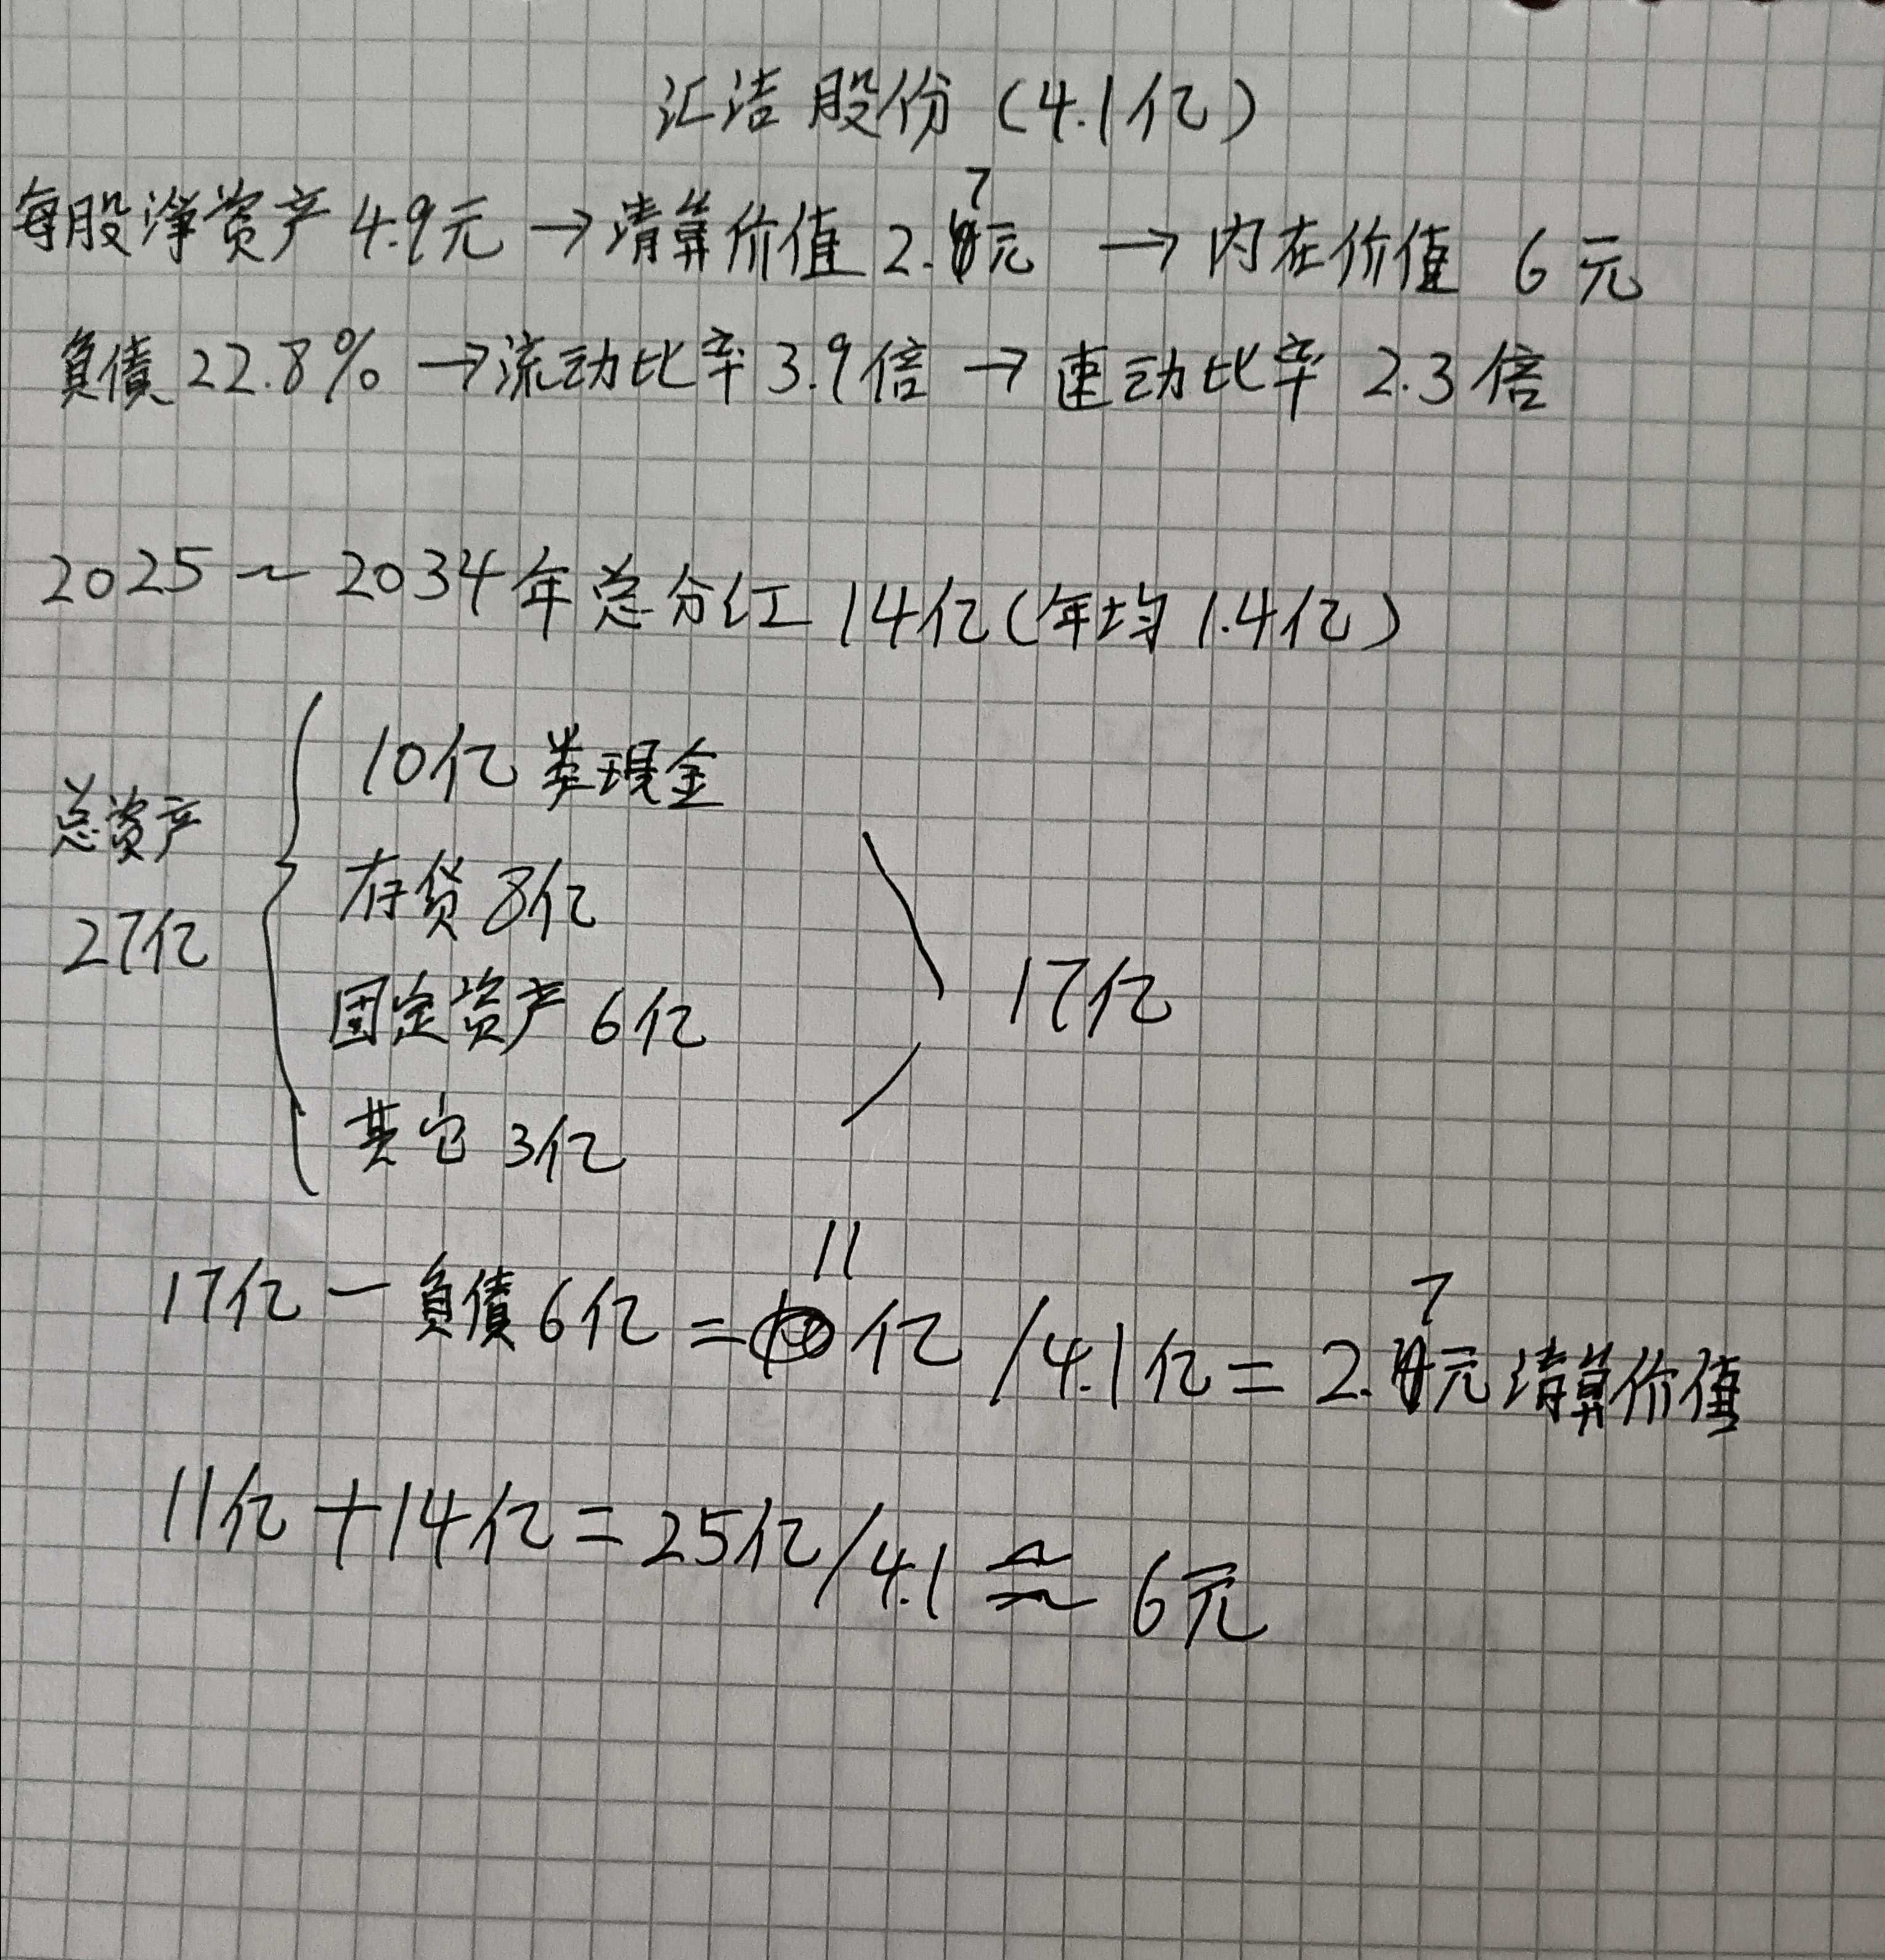 汇洁股份（4.1亿）
每股净资产4.9元→清算价值2.7元→内在价值 6元
負債22.8%→流动比率3.9倍→速动比率 2.3倍
2025~2034年总分红14亿(年均1.4亿)
总资产
27亿
10亿类現金
存货8亿
固定资产6亿
其它3亿
17亿
17亿-負債6亿=11亿/4.1亿=2.7元清算价值
11亿+14亿=25亿/4.1≈6元